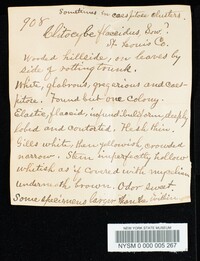 Sometimes in caespitose clusters.
908
Clitocybe flaccidus Sow.?
St Louis Co.
Wooded hillside, on leaves by
side of rotting trunk.
White, glabrous, gregarious and caes-
pitose. Found but one colony.
Elastic, flaccid, infundibuliform, deeply
lobed and contorted. Flesh thin.
Gills white then yellowish, crowded
narrow. Stem imperfectly hollow
whitish as if covered with mycelium
underneath brown. Odor sweet.
Some specimens larger than the
NEW YORK STATE MUSEUM
NYSM 0 000 005 267